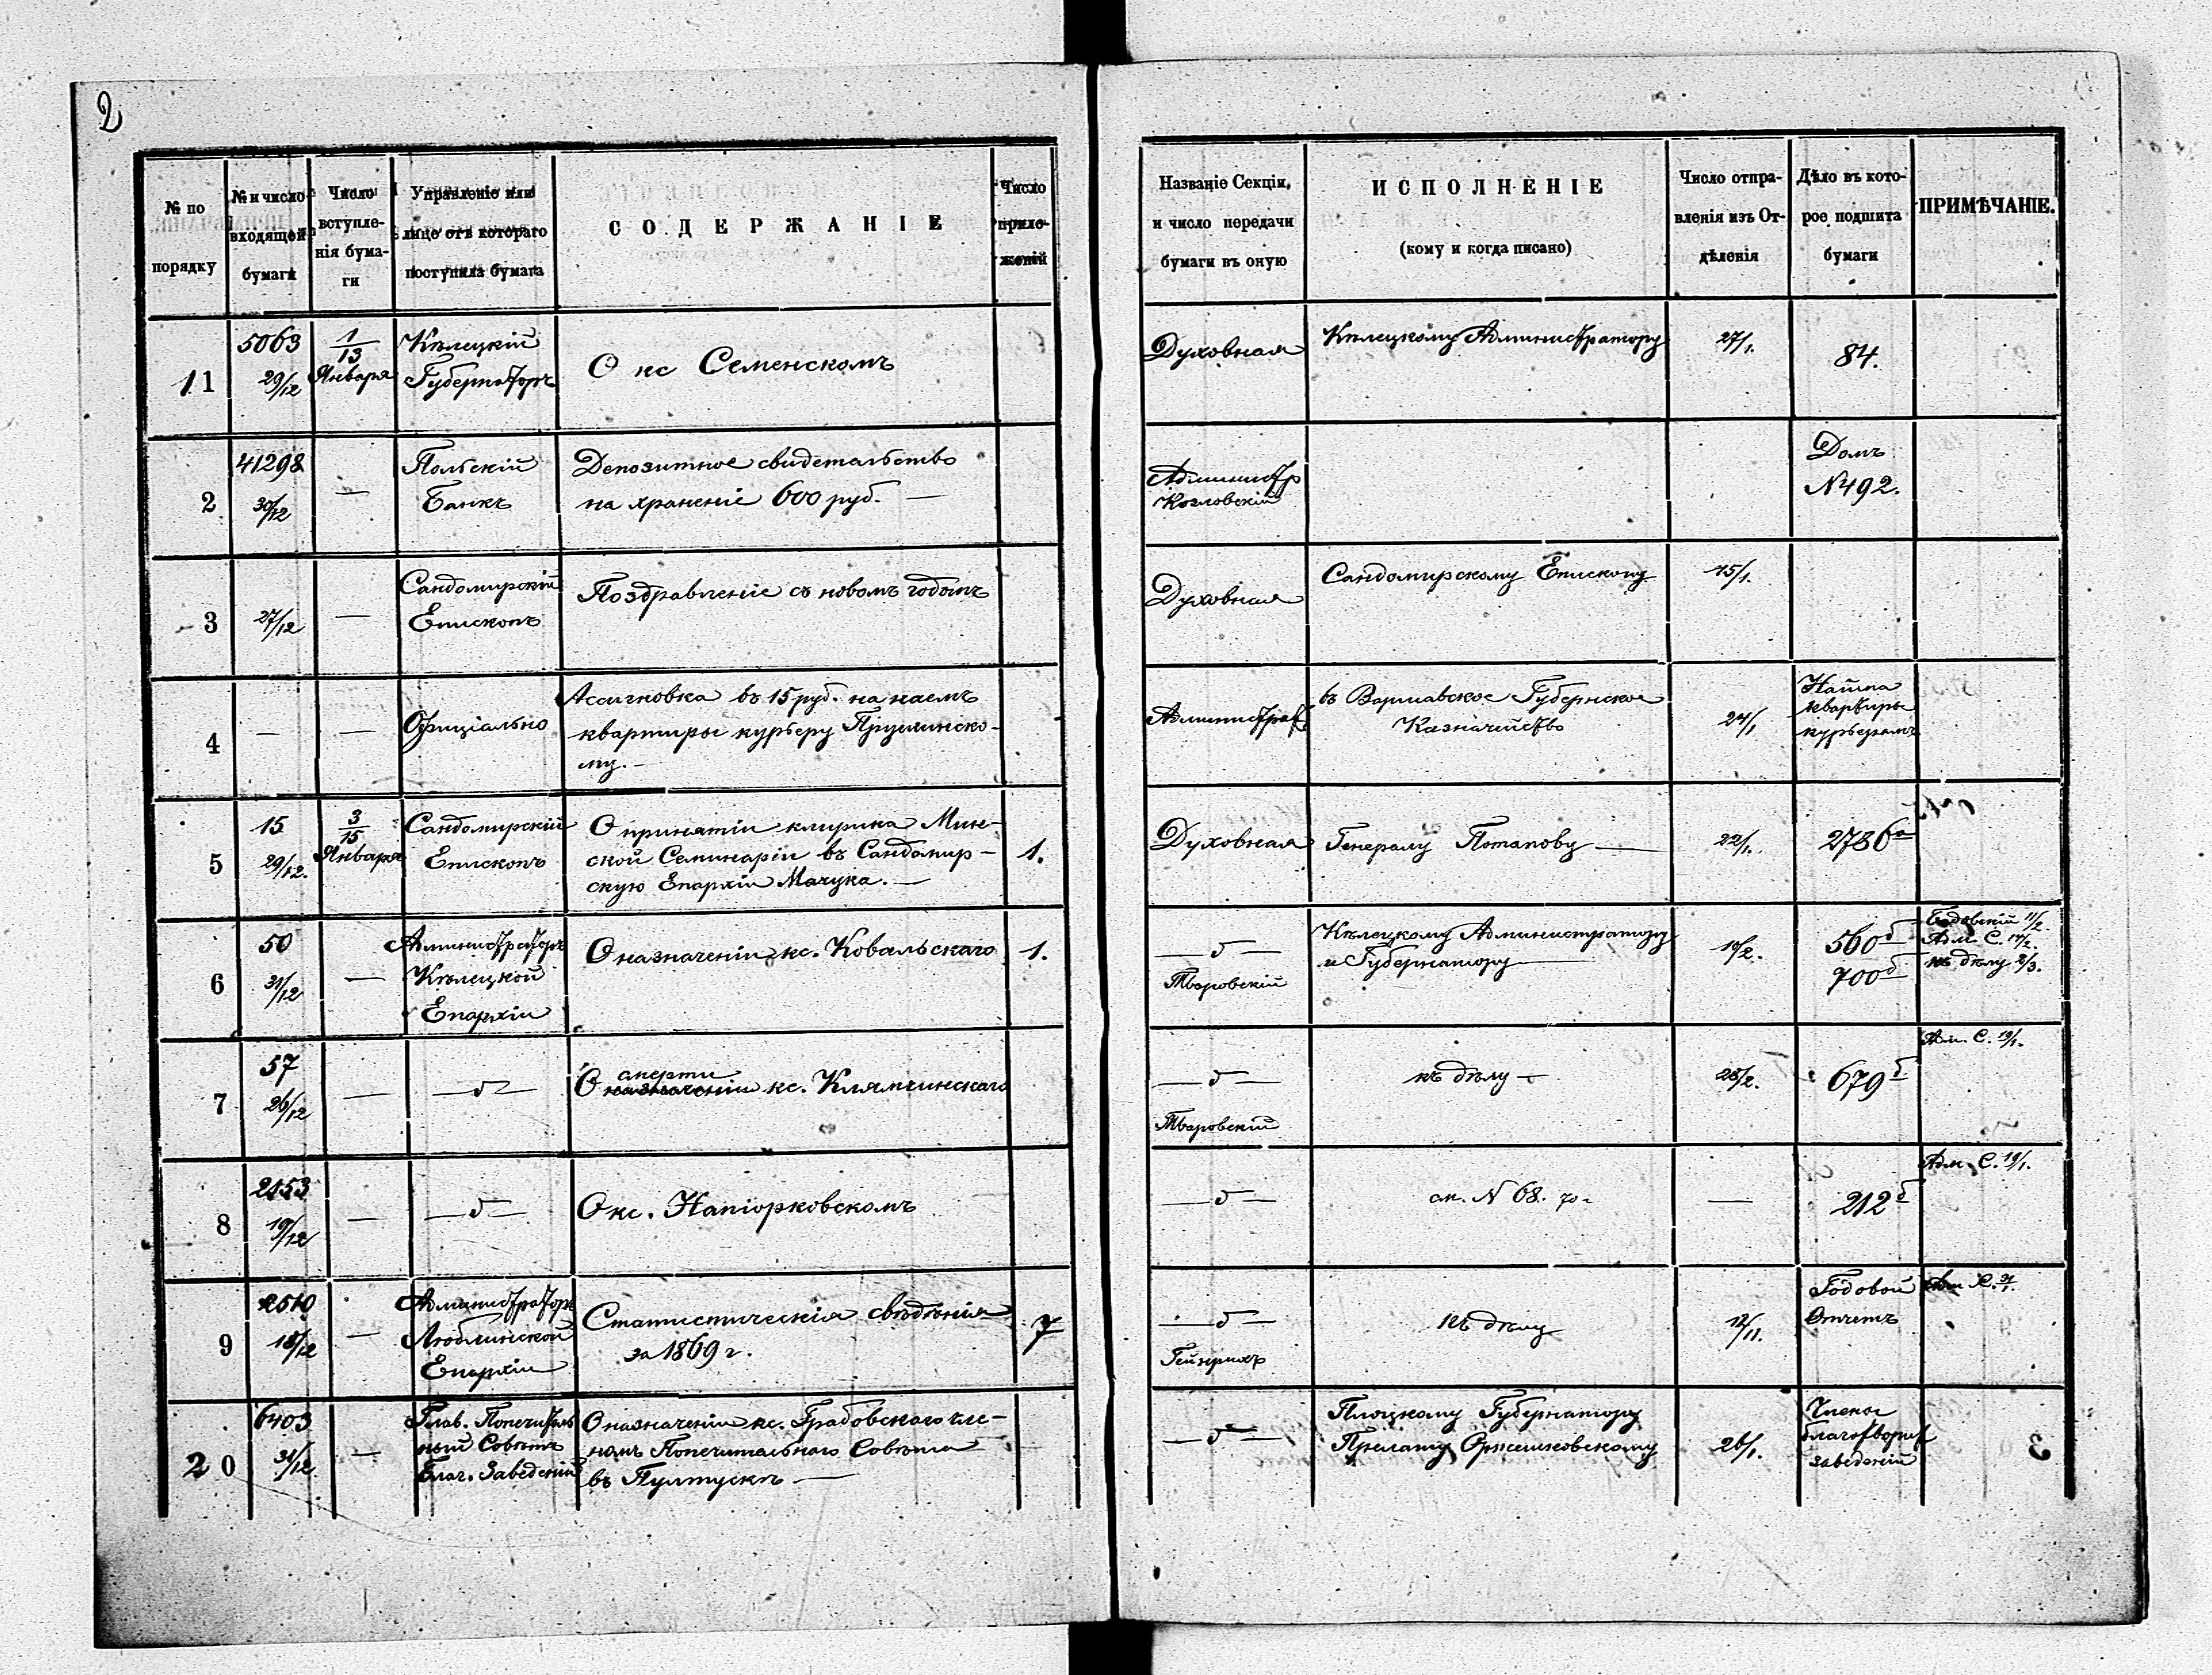 2
№ по порядку
№ и число входящей бумаги
Число вступле-нія бума-ги
Управленіе или лице отъ котораго поступила бумага
СОДЕРЖАНІЕ
Число прило-женій
Названіе Секціи, и число передачи бумаги въ оную
ИСПОЛНЕНІЕ
(кому и когда писано)
Число отпра-вленія изъ От-дѣленія
Дѣло въ кото-рое подшита бумаги
ПРИМѢЧАНІЕ.
11
5063
29/12
1/13
Января
Кѣлецкій
Губернаторъ
О кс Семенскомъ
Духовная
Кѣлецкому Администратору
27/1.
84.
2
41298
30/12
—
Польскій
Банкъ
Депозитное свидетельство
на храненіе 600 руб. —
Администр
Козловскій
Домъ
N 492.
3
27/12
—
Сандомирскій
Епископъ
Поздравленіе съ новомъ годомъ
Духовная
Сандомирскому Епископу
15/1.
4
—
—
Офиціально
Ассигновка въ 15 руб. на наемъ
квартиры курьеру Прушинско-
му. —
Администрат
въ Варшавское Губернское
Казначейство
24/1
Найма
квартиры
курьерамъ
5
15
29/12.
3/15
Января
Сандомирскій
Епископъ
О принятіи клирика Мин-
ской Семинаріи въ Сандомир-
скую Епархію Мачука. —
1.
Духовная
Генералу Потапову —
22/1.
2786а
6
50
31/12
—
Администраторъ
Кѣлецкой
Епархіи
О назначеніи кс. Ковальскаго
1.
— д —
Тваровскій
Кѣлецкому Администратору
и Губернатору —
560б
700б
Адм. С.
къ дѣлу 2/3.
7
57
26/12
—
— д —
смерти
О назначеніи кс. Клямчинскаго
— д —
Тваровскій
къ дѣлу —
25/2.
679б
Адм. С. 19/1.
8
2153
19/12
—
— д —
О кс. Напіорковскомъ
— д —
см. N 68. 70 г
—
212б
Адм. С. 19/1.
9
2510
18/12
—
Администраторъ
Люблинской
Епархіи
Статистическія свѣдѣнія
за 1869 г.
7
— д —
Гейнрихъ
къ дѣлу
12/11.
Годовой
Отчетъ
20
6403
31/12
—
Глав. Попечитель
ный Совѣтъ
Благ. Заведеній
О назначеніи кс. Грабовскаго чле-
номъ Попечительнаго Совѣта
въ Пултускѣ —
— д —
Плоцкому Губернатору
Прелату Оржешковскому
26/1.
Члены
благотворит
заведеній
3